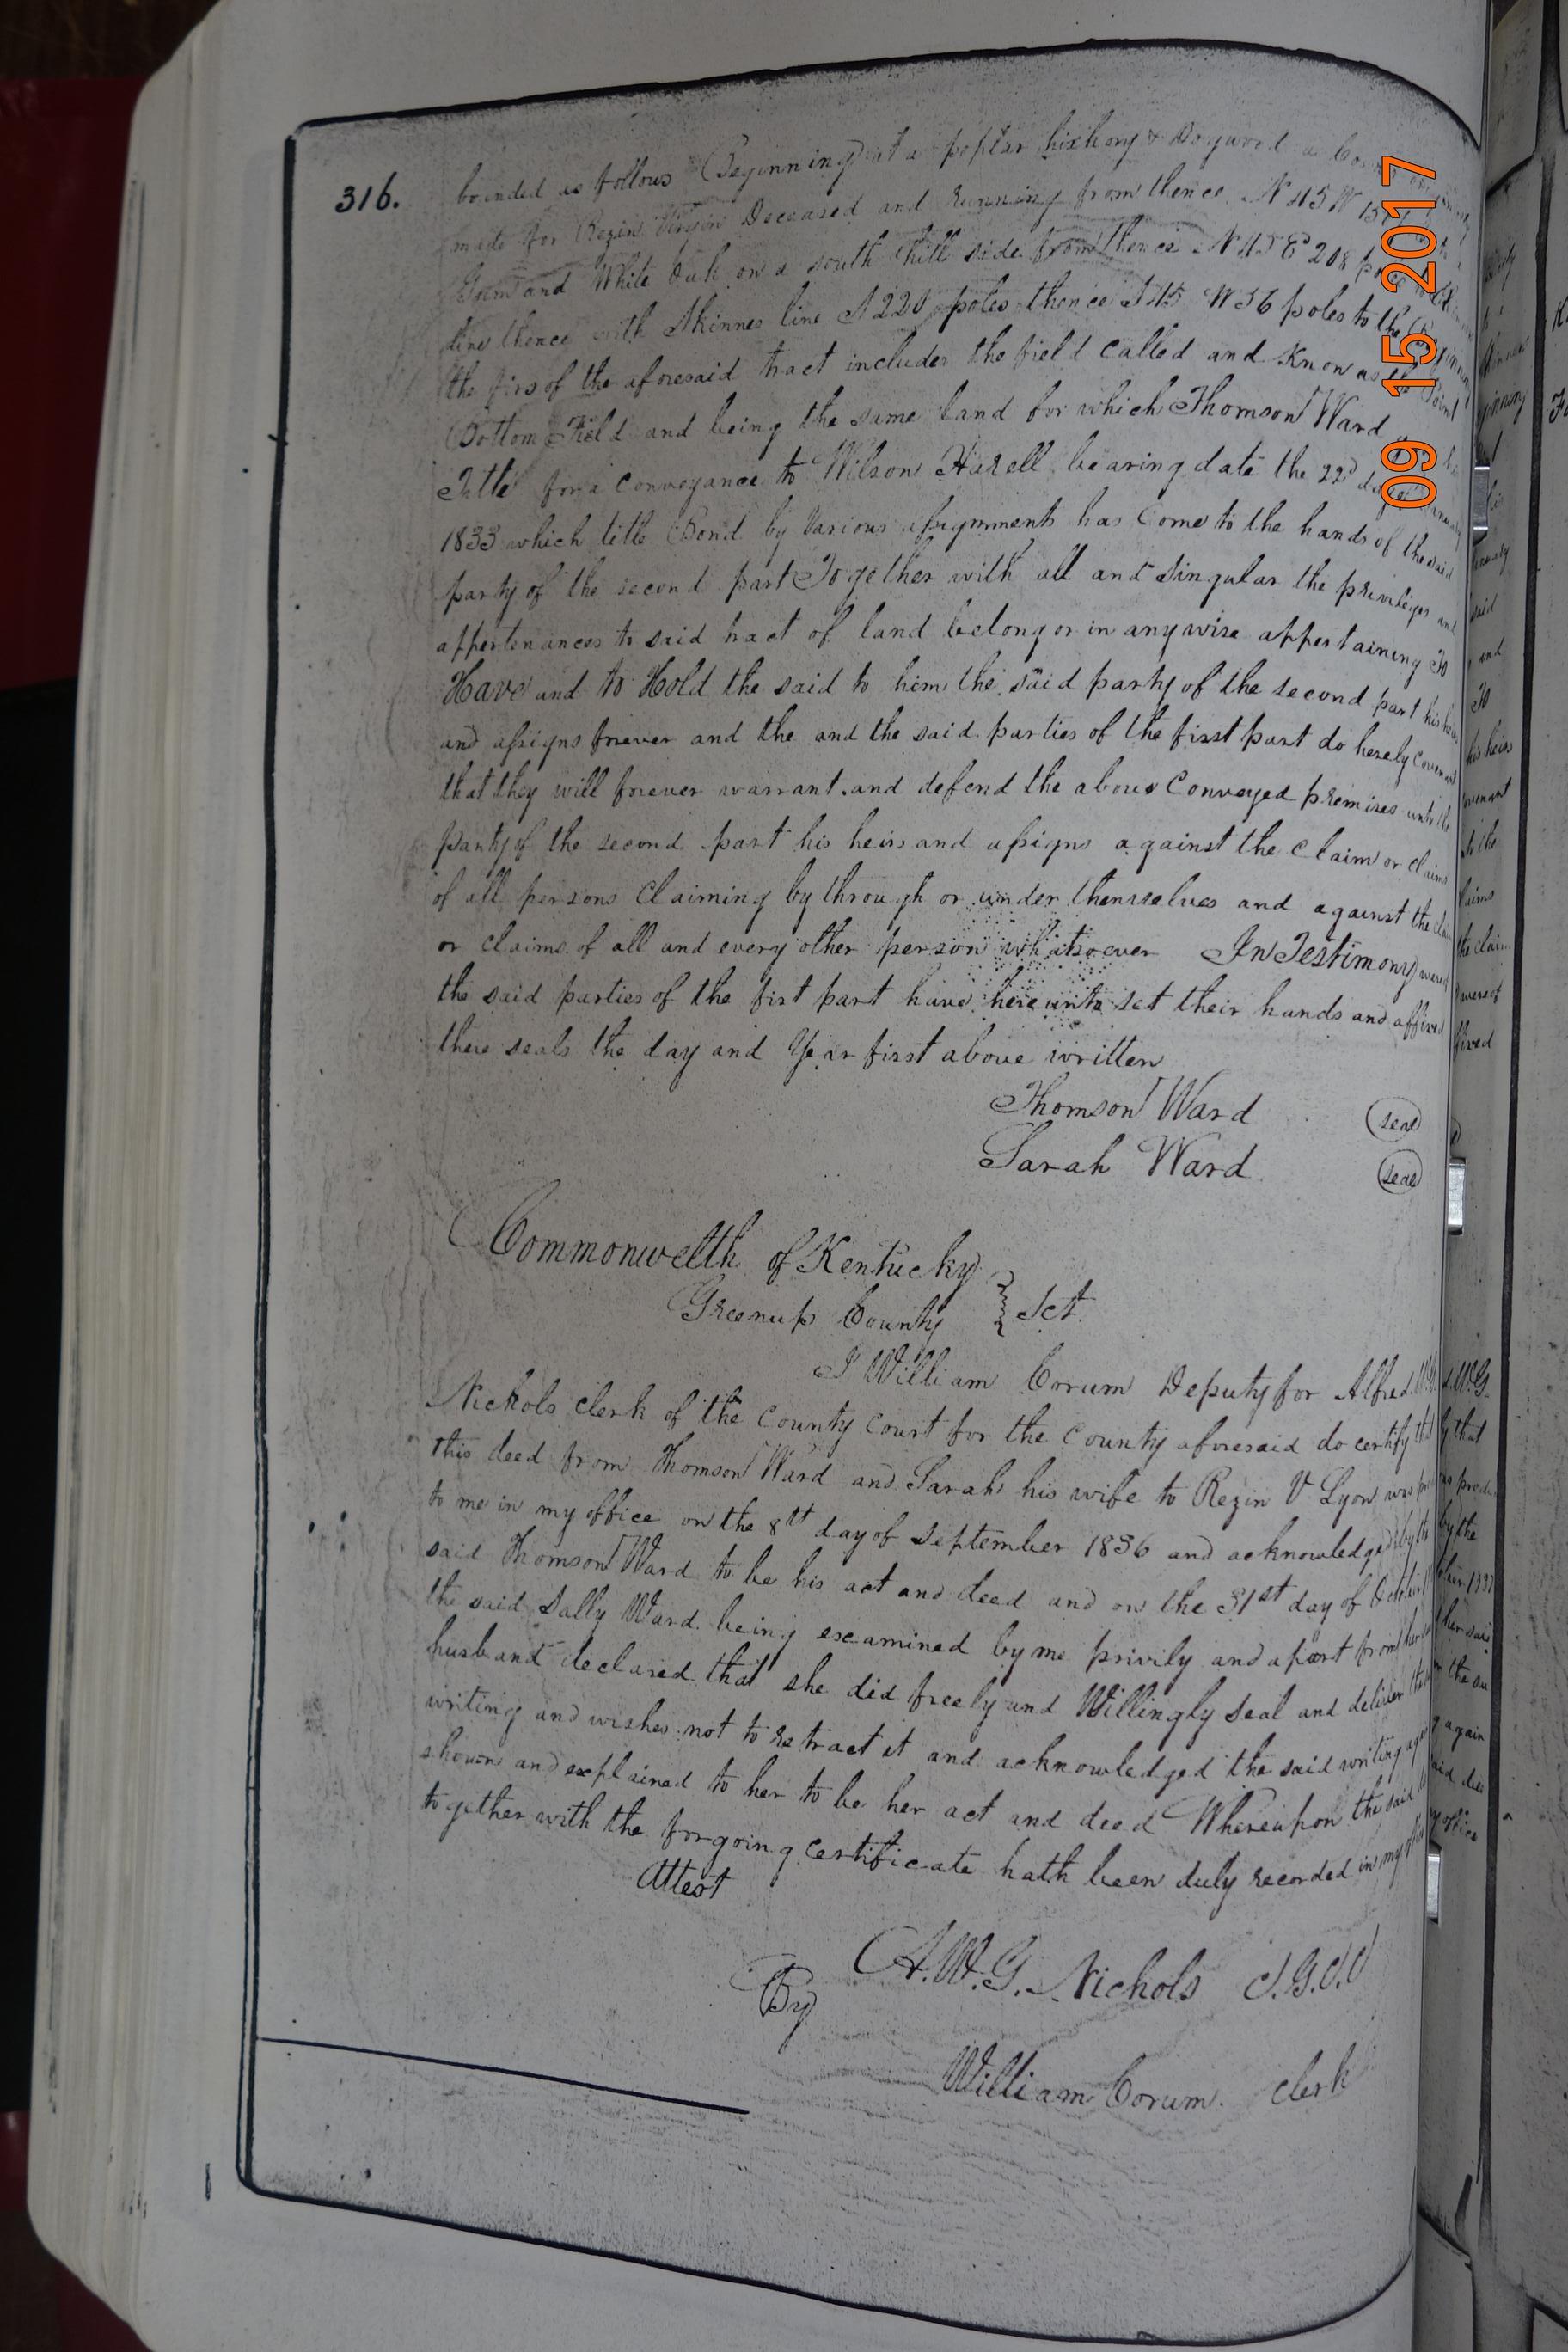 316.
bounded as follows Beginning at a poplar hickory & Dogwood a
made for Rezin Virgin Deceased and Running from thence N 45 W
Gum and White Oak on a south hill side from thence N 45 E 208
line thence with Skinnes line S 220 poles thence S 45 W 56 poles to the Beginning
the firs of the aforesaid tract includes the field called and Know as the Point
Bottom Field and being the same land for which Thomson Ward
Title for a Conveyance to Wilson Hazell bearing date the 22d day of
1833 which title Bond by Various assignments has Come to the hands of the said
party of the second part Together with all and singular the privileges and
appertenances to said tract of land belong or in any wise appertaining To
Have and to Hold the said to him the said party of the second part his heirs
and assigns forever and the and the said parties of the first part do hereby Covenant
that they will forever warrant and defend the above Conveyed premises unto the
party of the second part his heirs and assigns against the claim or claims
of all persons Claiming by through or under themselves and against the claim
or claims of all and every other person whatsoever In Testimony wereof
the said parties of the first part have hereunto set their hands and affixed
there seals the day and Year first above written
Thomson Ward (seal)
Sarah Ward (seal)
Commonwelth of Kentucky
Greenup County } Sct
I William Corum Deputy for Alfred W.G.
Nichols clerk of the County Court for the County aforesaid do certify that
this deed from Thomson Ward and Sarah his wife to Rezin V Lyon was
to me in my office on the 8th day of September 1836 and acknowledged by the
said Thomson Ward to be his act and deed and on the 31st day of October
the said Sally Ward being examined by me privily and apart from her said
husband declared that she did freely and Willingly seal and deliver the
writing and wishes not to retract it and acknowledged the said writing again
shown and explained to her to be her act and deed Whereupon the said
together with the forgoing certificate hath been duly recorded in my office
Attest
A.W.G. Nichols C.G.C.C
By
William Corum Clerk
09 15 2017